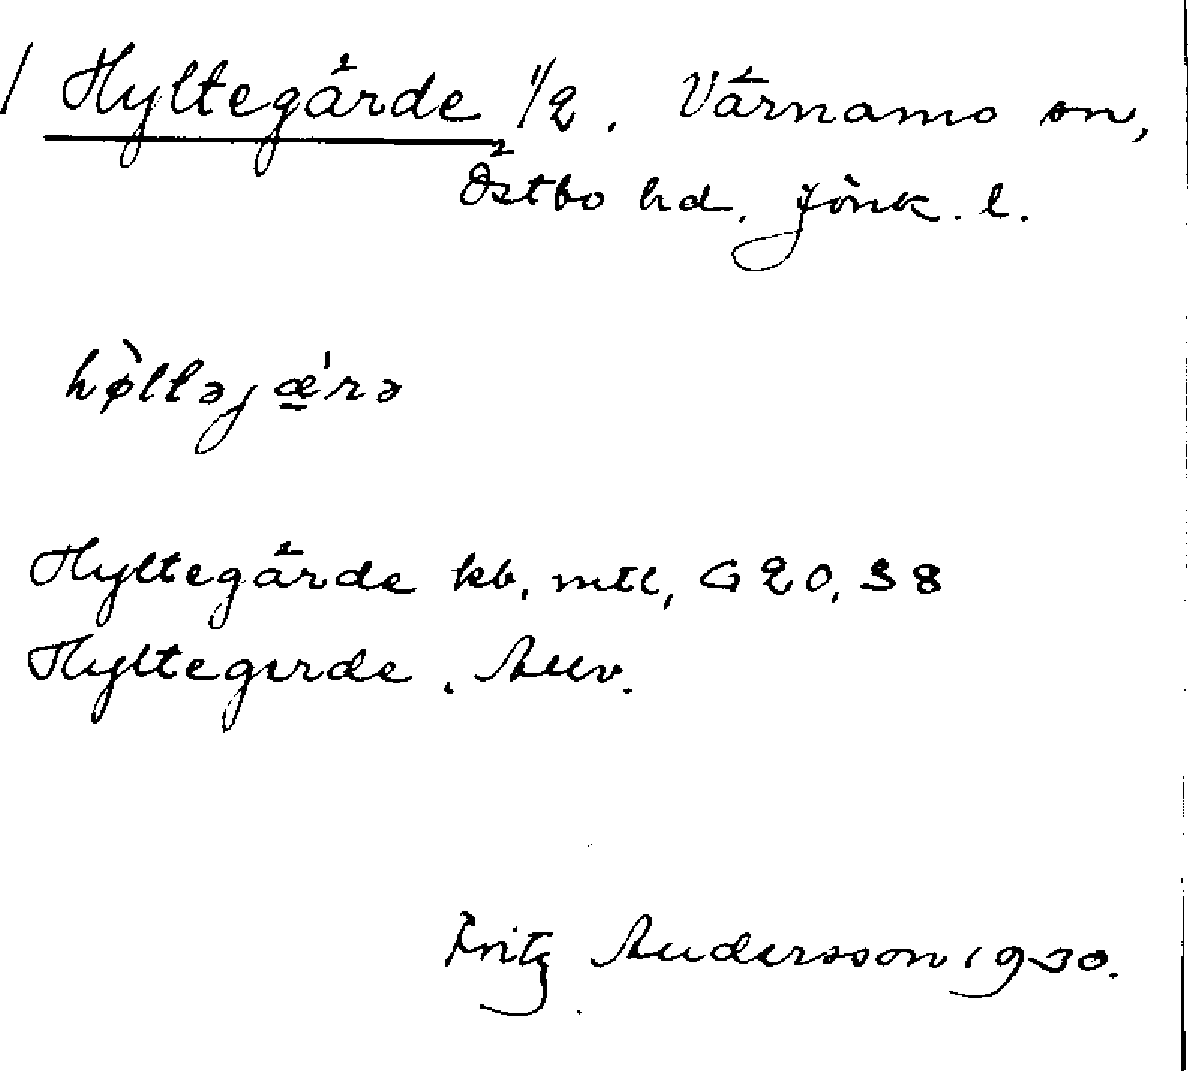 / Hyltegärde 1/2. Värnamo sn,
Östbo hd. Jönk. l.
hø̀llǝjǽ̠rǝ
Hyltegärde kb, mtl, G 20, 38
Hyltegerde. Anv.
Fritz Andersson 1930.